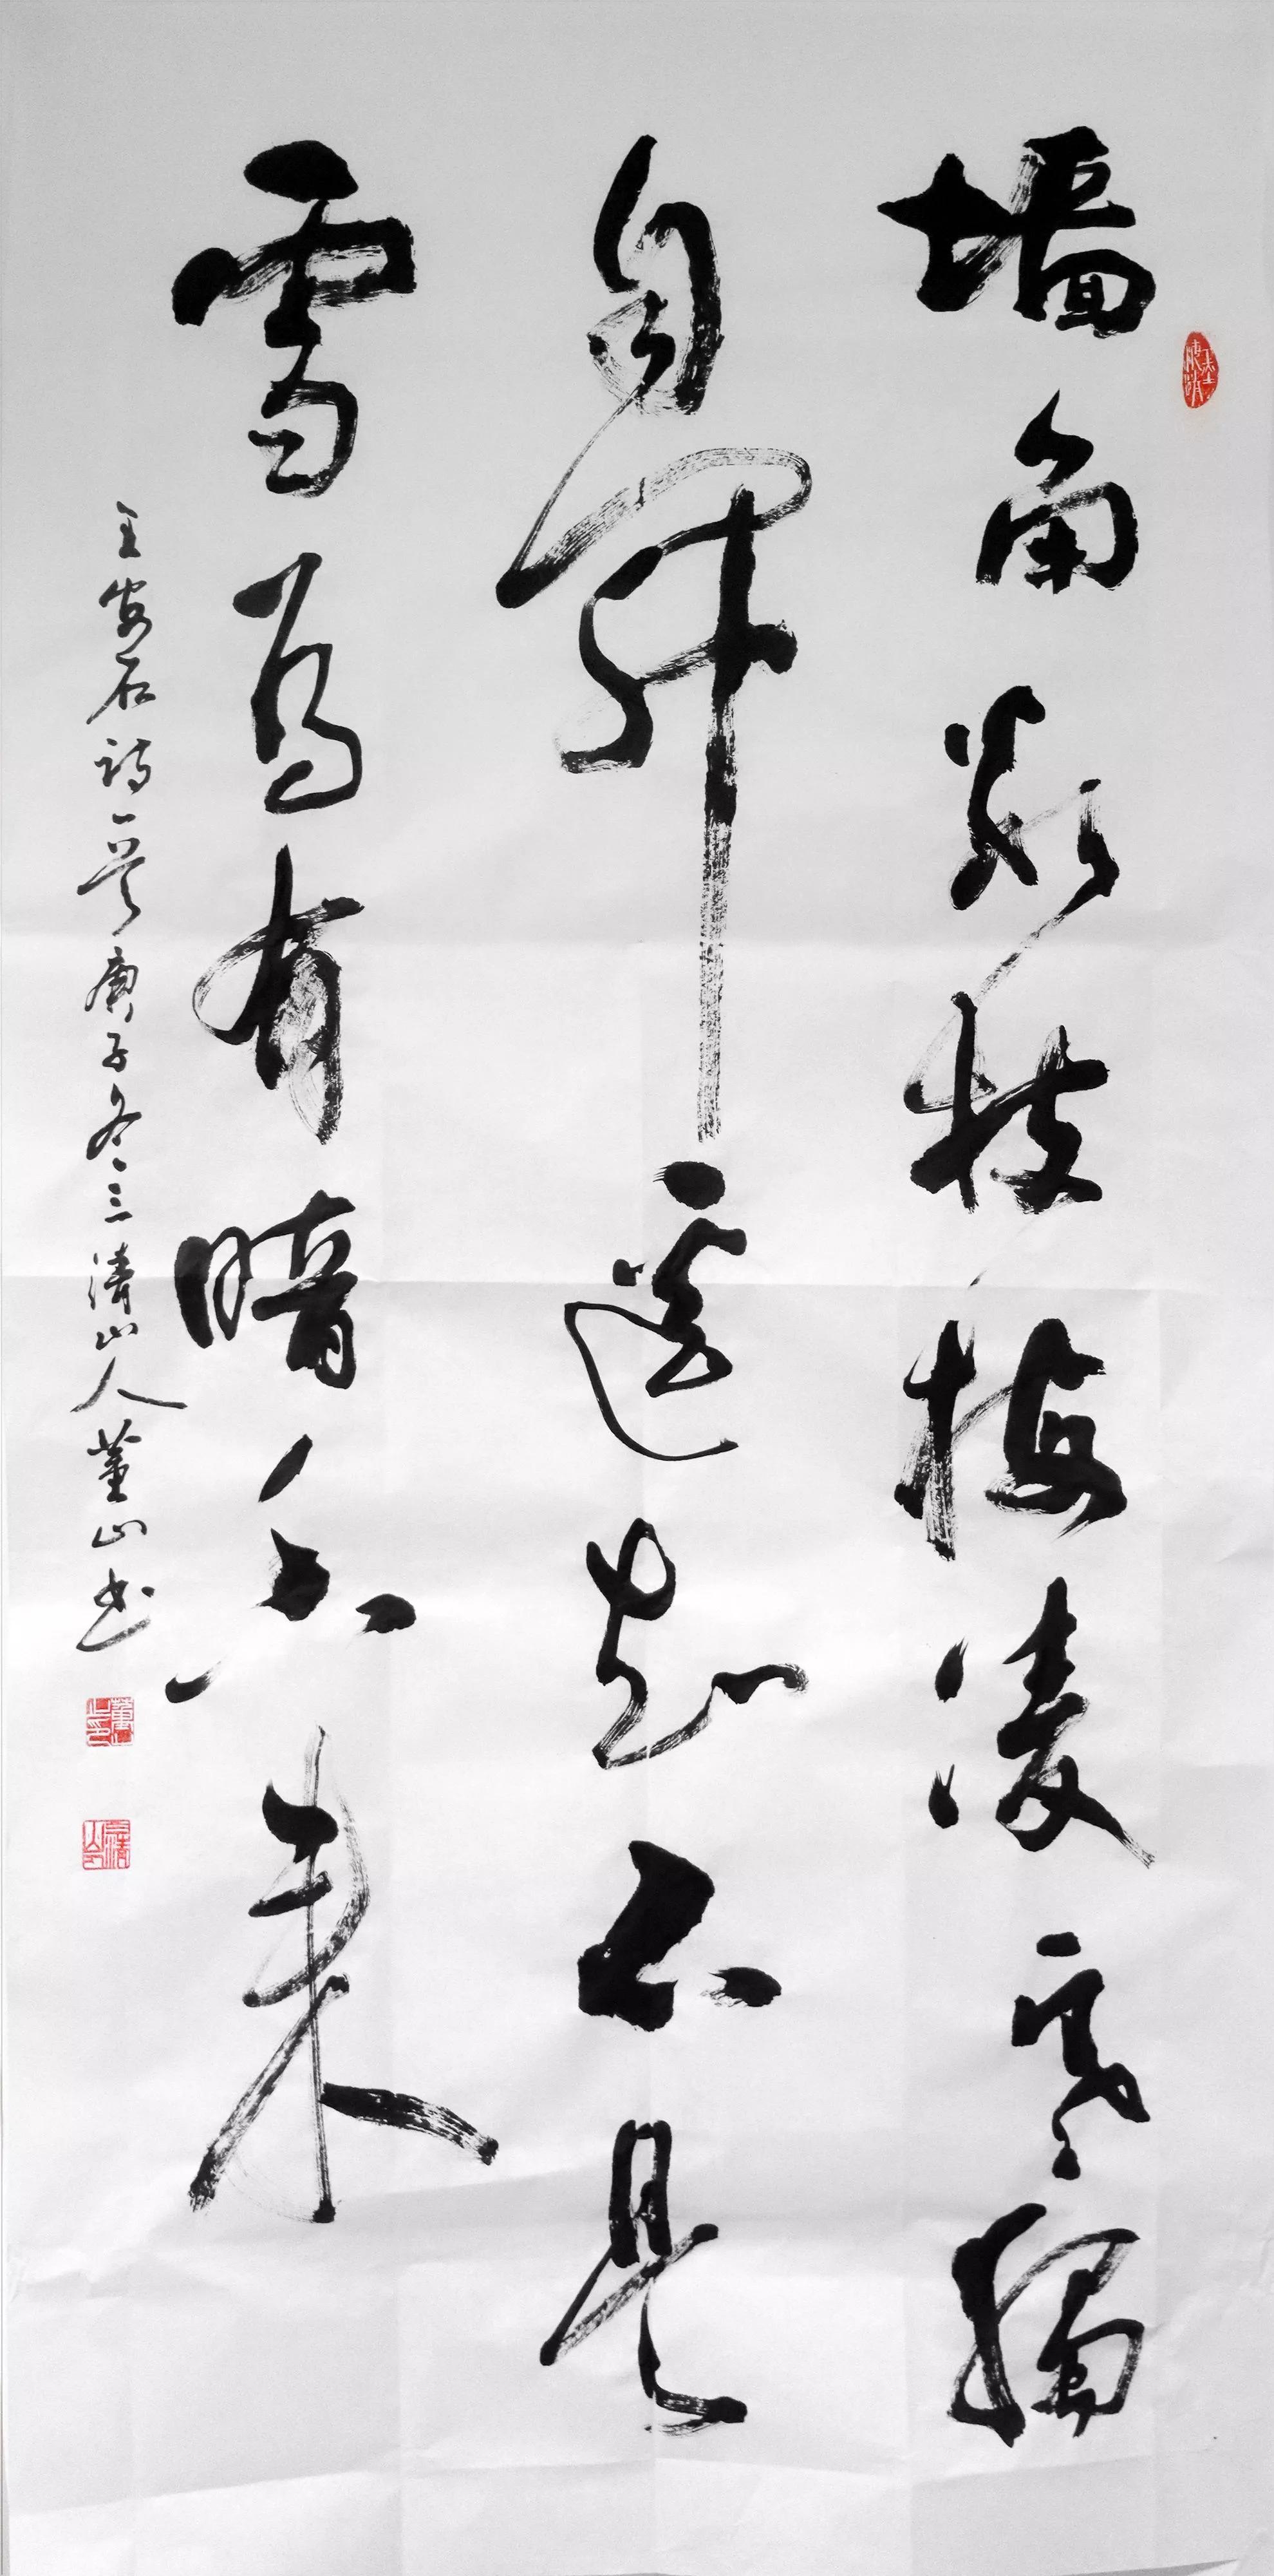 墙角数枝梅凌寒獨
自开遥知不是
雪為有暗香来
王安石詩一首庚子冬三清山人董山书